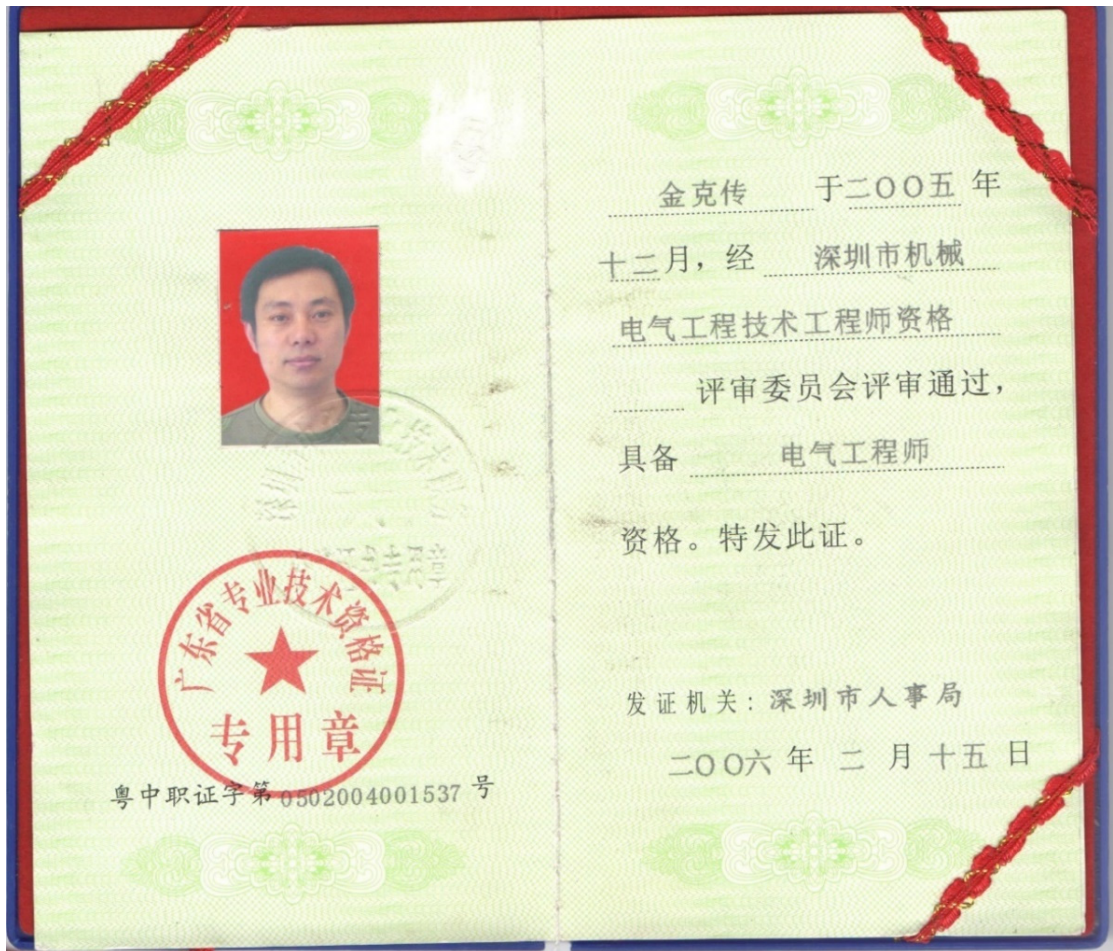 广东省专业技术资格证
专用章
粤中职证字第0502004001537号
金克传 于二〇〇五年
十二月，经 深圳市机械
电气工程技术工程师资格
评审委员会评审通过，
具备 电气工程师
资格。特发此证。
发证机关：深圳市人事局
二〇〇六年二月十五日